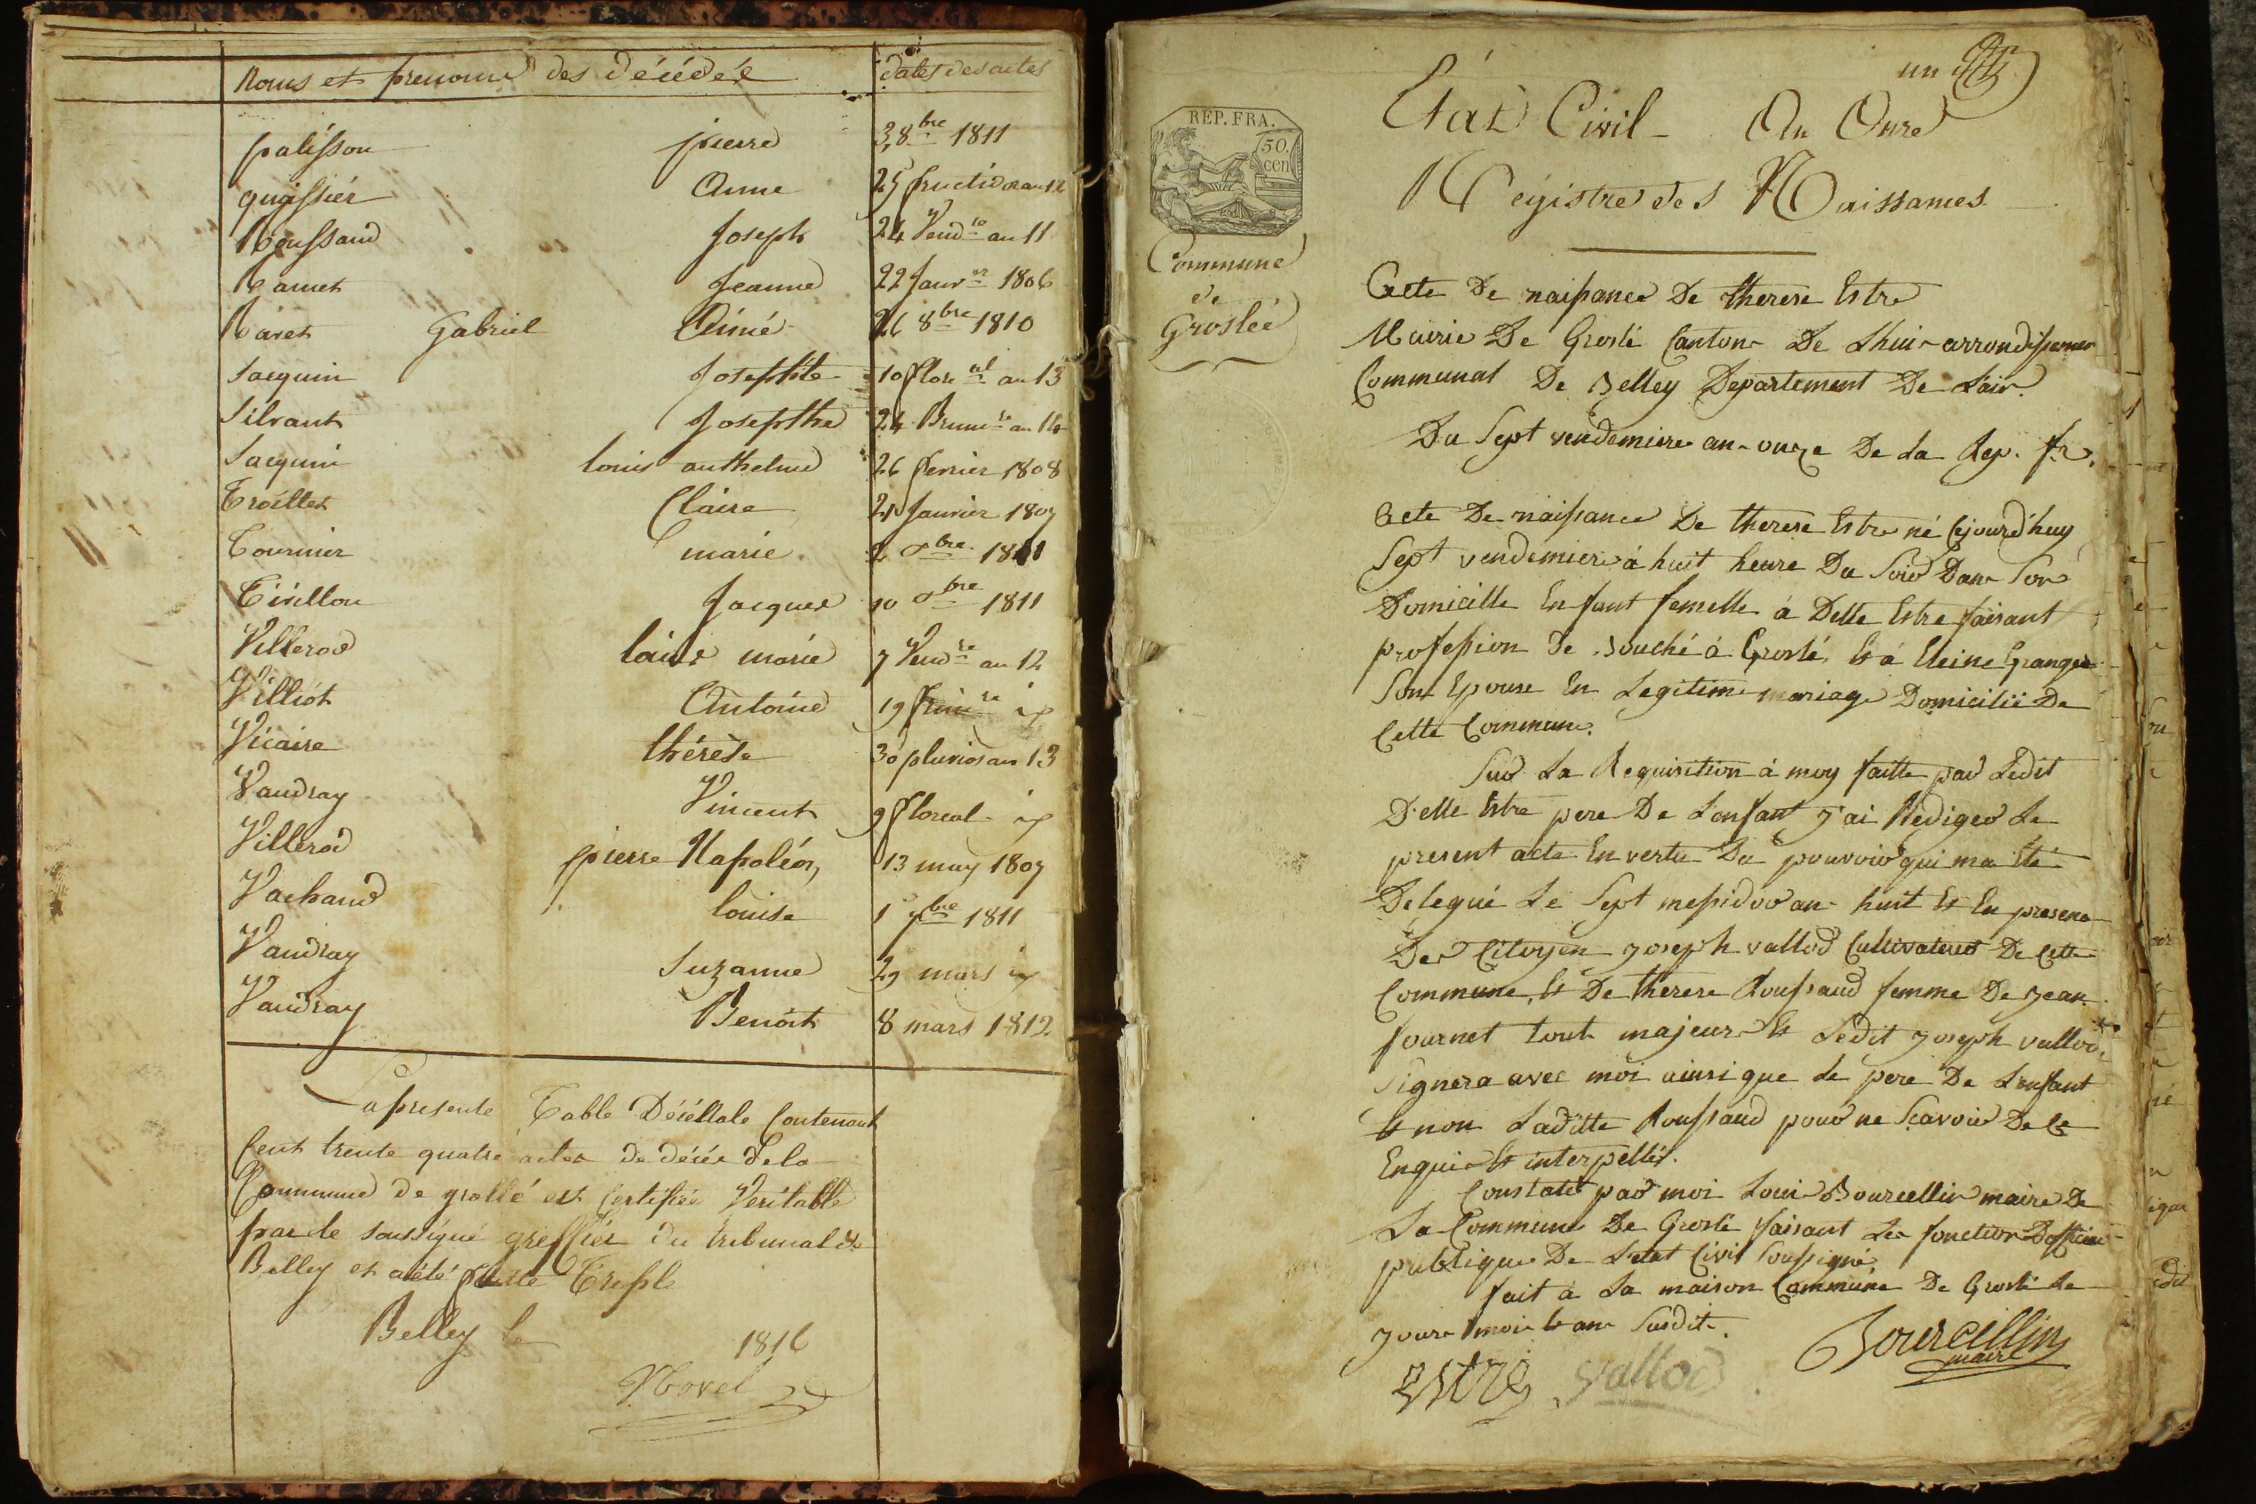 Noms et prenoms des décédés dates des actes
palisson pierre 3 8bre 1811
quissiér Anne 25 fructidor an 12
Roussaud Joseph 24 Vendre an 11
Ramet Jeanne 22 Janvr 1806
Ravet Gabriel Aimé 26 8bre 1810
Jacquin Josephte 10 floréal an 13
Silvant Josephte 24 Brumre an 14
Jacquin louis anthelme 26 fevrier 1808
Troillet Claire 21 Janvier 1807
Tournier marie 2 8bre 1811
Tirillon Jacques 10 8bre 1811
Villerod marie 7 Vendre an 12
Villiot Antoine 19 frimre id
Vicaire thérèse 30 pluvios an 13
Vaudray Vincent 9 floreal id
Villerod pierre Napoléon 13 may 1807
Vachaud louise 1 7bre 1811
Vaudray Suzanne 29 mars id
Vaudray Benoit 8 mars 1812
La presente Table Décéllale Contenant
Cent trente quatre actes de décés de la
Commune de grollé est Certifiée Veritable
par le soussigné greffiér du tribunal de
Belley et a été faitte Triple
Belley le 1816
Morel
un
REP. FRA.
50.
cen
Commune
de
Groslée
Etat Civil An Onze
Registre des Naissances
Acte De naissance De therese Estre
Mairie De Groslé Canton De Lhuis arrondissement
Communal De Belley Departement De Lain.
Du Sept vendemiere an onze De La Rep. fr.
Acte De naissance De therese Estre né Cejourd'huy
Sept vendemiere á huit heure Du Soir Dans Son
Domicille Enfant femelle á Delle Estre faisant
profession de Bouché á Groslé, Et á Eleine Granger
Son Epouse En Legitime mariage Domicilié De
Cette Commune.
Sur La Requisition á moy faitte par Ledit
Delle Estre pere De Lenfant J'ai Rediger Le
present acte En vertu Du pouvoir qui ma Eté
Delegué Le Sept messidor an huit Et En presence
Des Citoyen Joseph vallod Cultivateur De Cette
Commune, Et De therese Roussaud femme De Jean
fournet tout majeur Et Ledit Joseph vallod
Signera avec moi ainsi que Le pere De Lenfant
Et non Laditte Roussaud pour ne Scavoir De Ce
Enquis Et interpellés.
Constaté par moi Louis Bourcellin maire De
La Commune De Groslé faisant Les fonction Dofficier
publique De Letat Civil Soussigné,
fait á La maison Commune De Groslé Le
Jour mois Et an Susdit.
Estre Vallod Bourcellin
maire